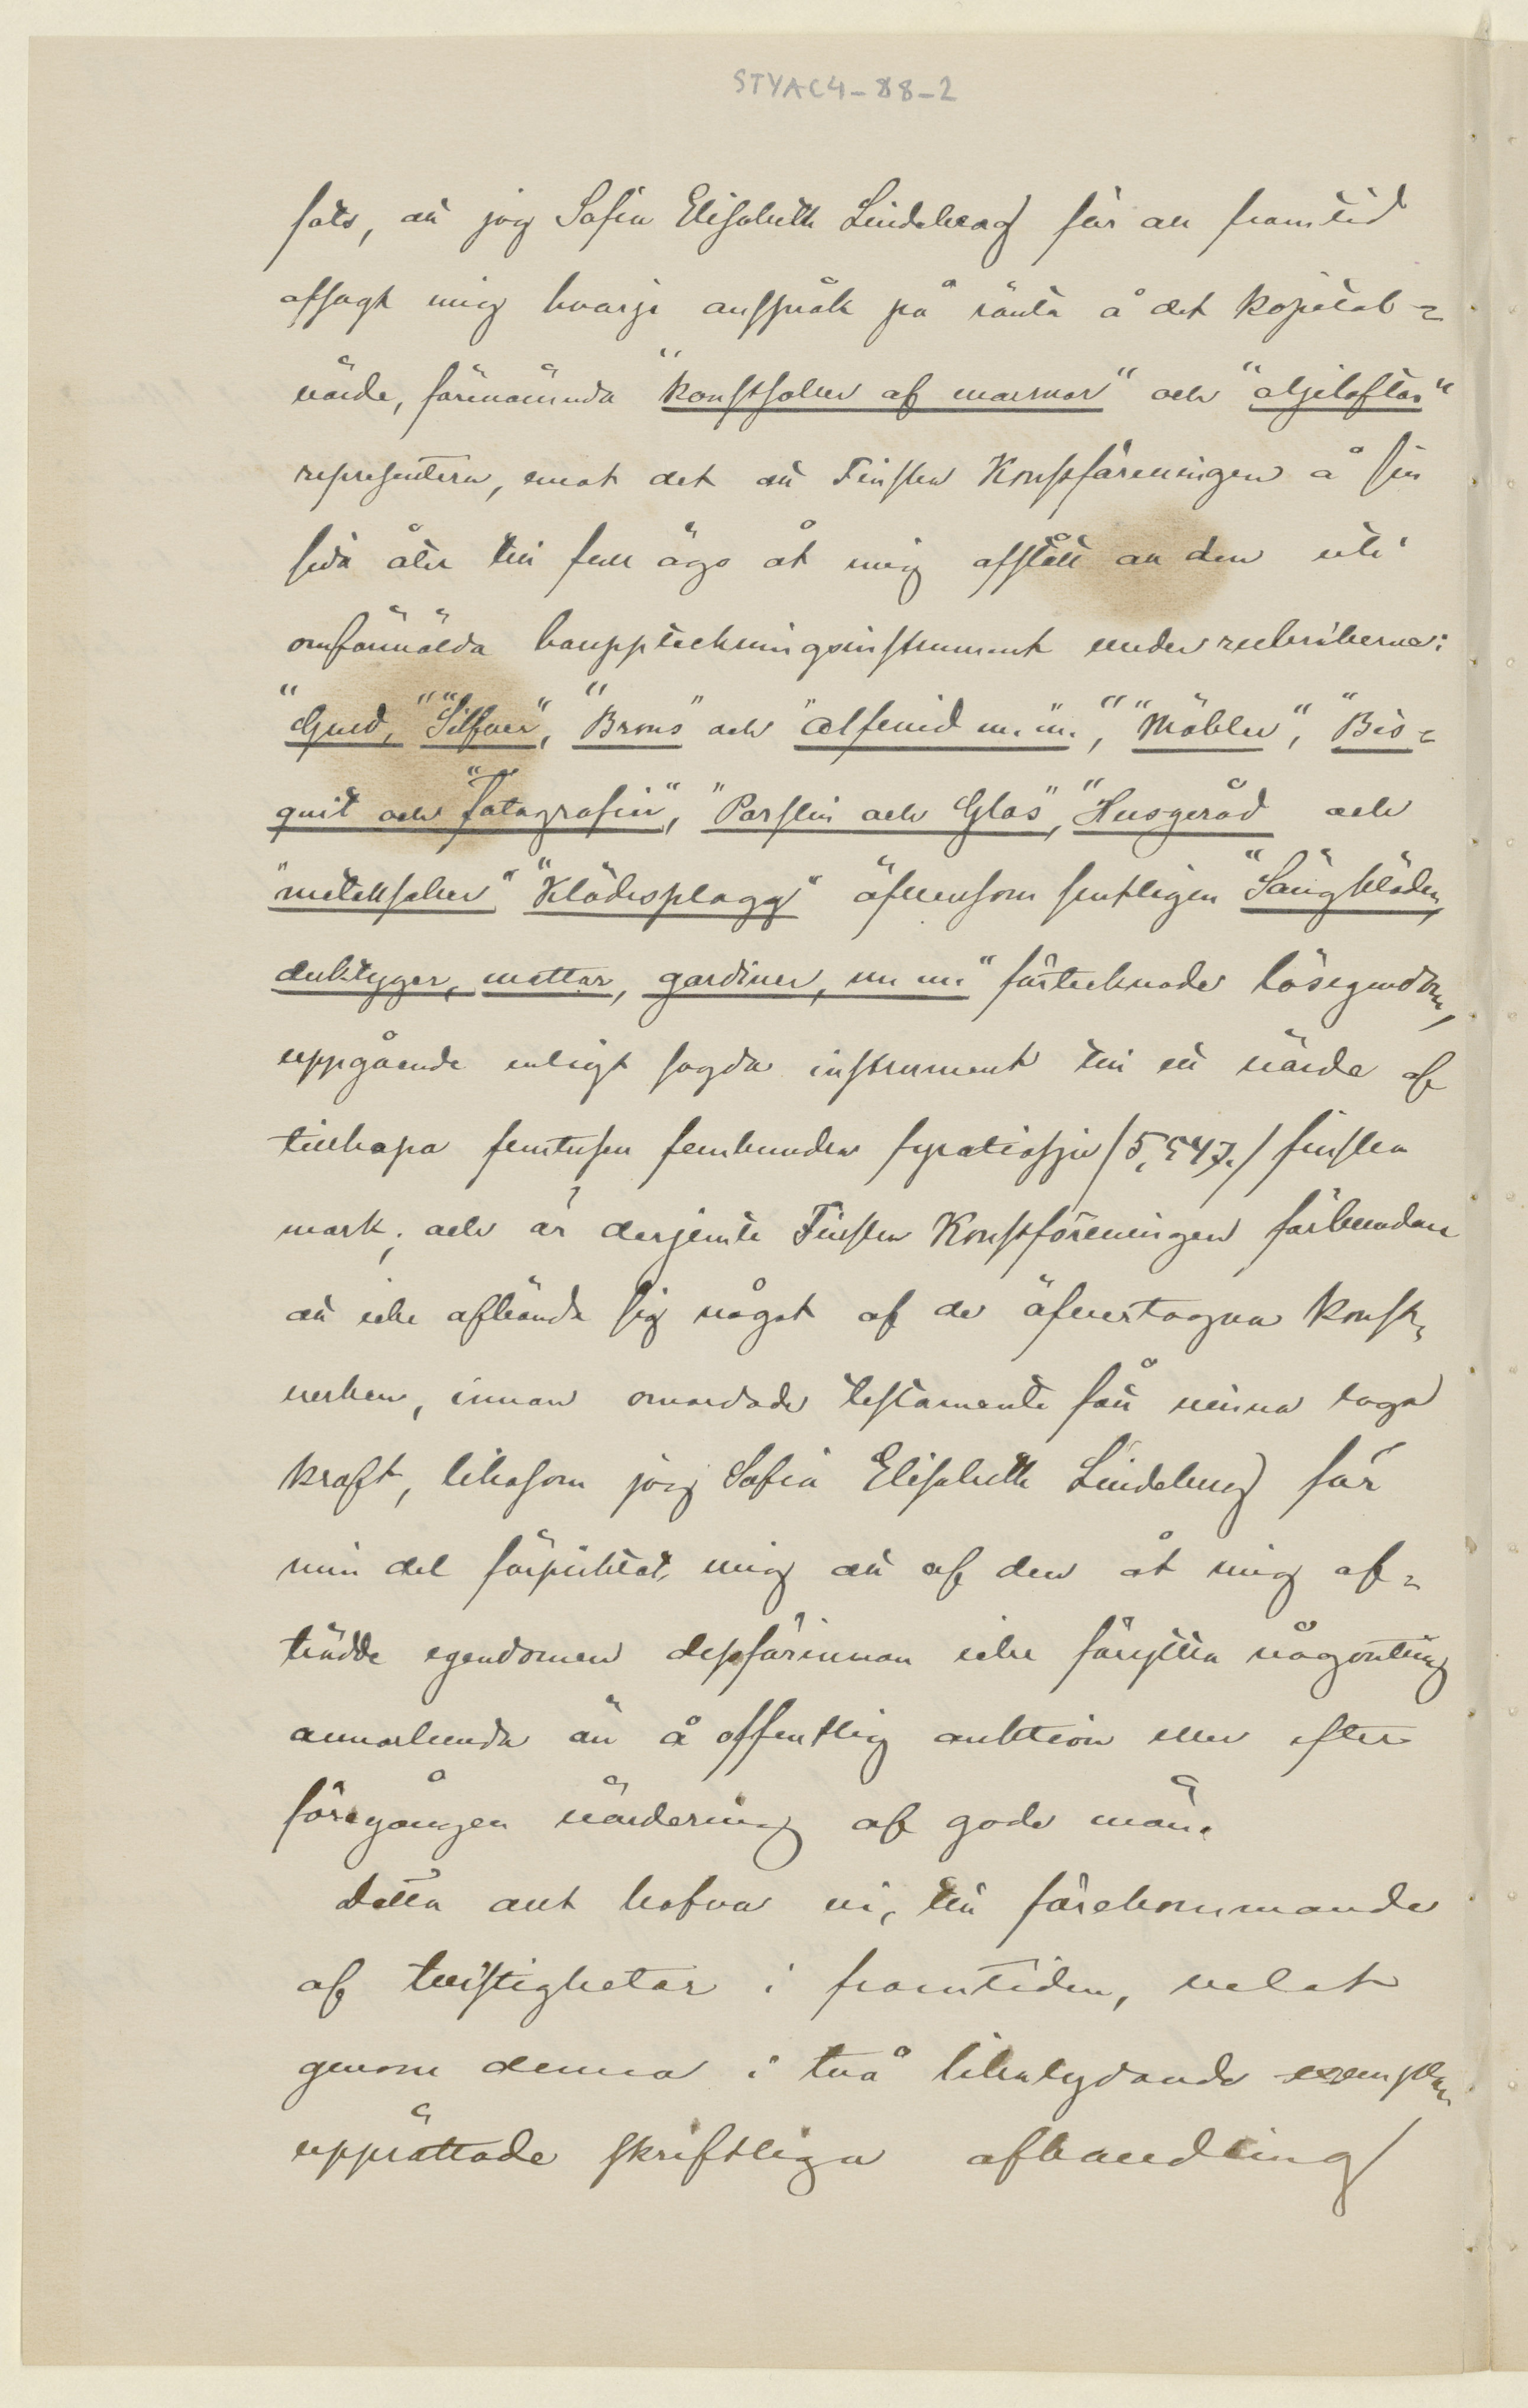 STYAC4-88-2
sats, att jag Sofia Elisabeth Lindeberg för all framtid
afsagt mig hvarje anspråk på ränta å det kapital-
värde, förenämnda "konstsaker af marmor" och "oljetaflor"
representera, emot det att Finska Konstföreningen å sin
sida åter till full ägo åt mig afstått all den uti
omförmälda bouppteckningsinstrument under rubrikerna:
"Guld," "Silfver", "Brons" och "Alfenid m. m.", "Möbler", "Bis-
quit och Fotografier", "Porslin och Glas", "Husgeråd och
metallsaker" "Klädesplagg" äfvensom slutligen "Sängkläder,
duktyger, mattor, gardiner, m m." förtecknade lösegendom,
uppgående enligt sagda instrument till ett värde af
tillhopa femtusen femhundra fyratiosju /5,547./ finska
mark; och är derjemte Finska Konstföreningen förbunden
att icke afhända sig något af de öfvertagna konst-
verken, innan omordade testamente fått vinna laga
kraft, likasom jag Sofia Elisabeth Lindeberg för
min del förpliktat mig att af den åt mig af-
trädde egendomen dessförinnan icke föryttra någonting
annorlunda än å offentlig auktion eller efter
föregången värdering af gode män.
Detta allt hafva vi, till förekommande
af tvistigheter i framtiden, velat
genom denna i två likalydande exemplar
upprättade skriftliga afhandling